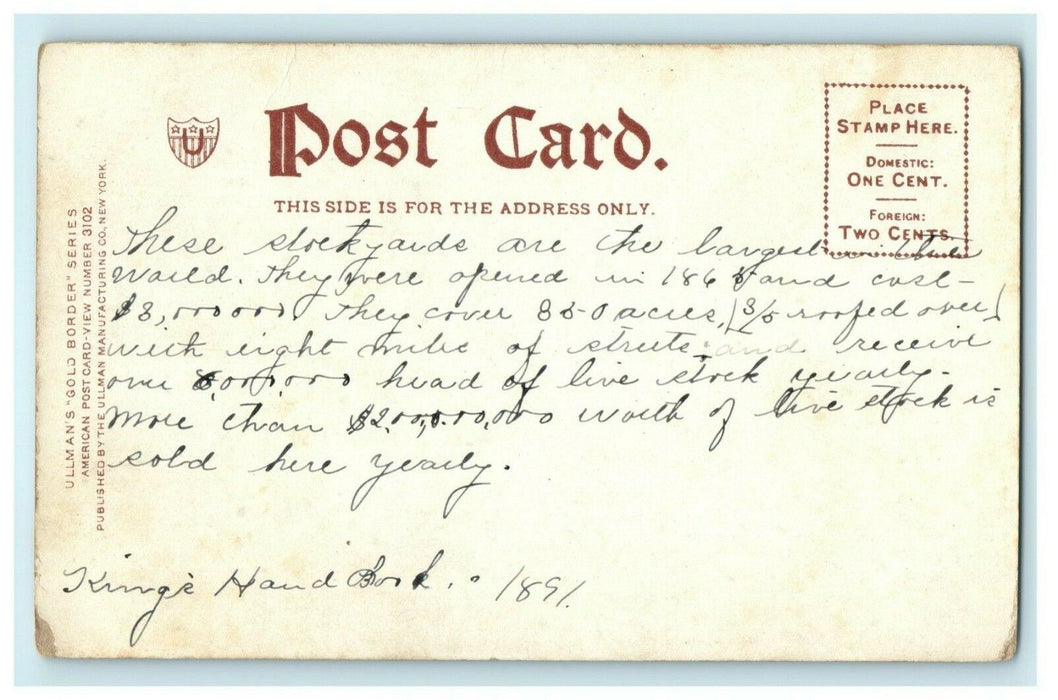 U
Post Card.
THIS SIDE IS FOR THE ADDRESS ONLY.
PLACE
STAMP HERE.
DOMESTIC:
ONE CENT.
FOREIGN:
TWO CENTS.
ULLMAN'S "GOLD BORDER" SERIES
AMERICAN POST CARD-VIEW NUMBER 3102
PUBLISHED BY THE ULLMAN MANUFACTURING CO, NEW YORK.
These stockyards are the largest in the
World. They were opened in 1865 and cost-
$3,000000 They cover 350 acres, (3/5 roofed over)
with eight miles of streets and receive
over 8,000,000 head of live stock yearly.
More than $200,000,000 worth of live stock is
sold here yearly.
King's Hand Book. 1891.